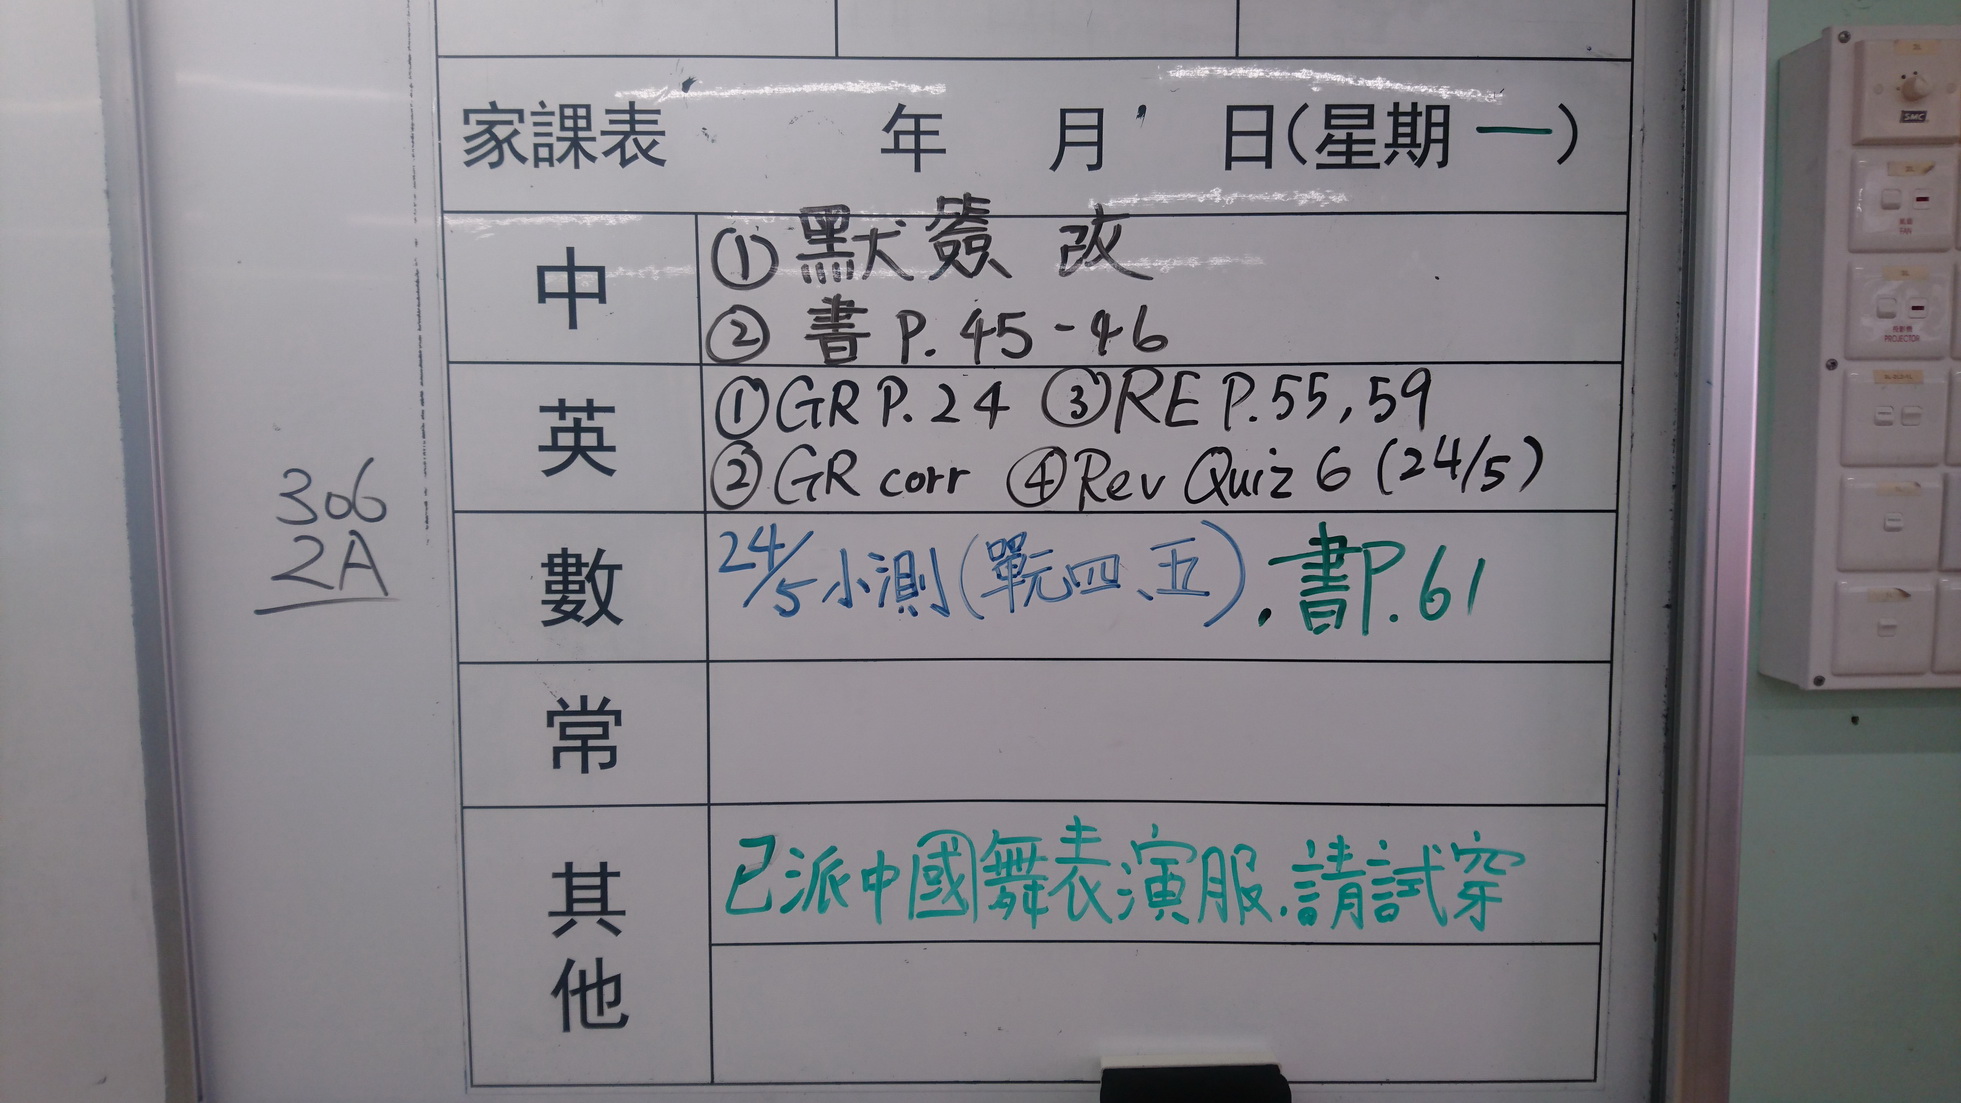 家課表 年 月 日(星期 一)
中
① 默簽 改
② 書 P. 45-46
英
① GR P. 24 ③ RE P. 55, 59
② GR corr ④ Rev Quiz 6 (24/5)
數
24/5 小測(單元四、五). 書P. 61
常
其他
已派中國舞表演服.請試穿
306
2A
SMC
FAN
PROJECTOR